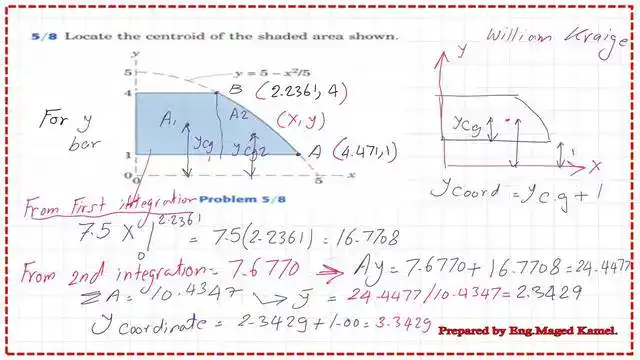 William Kraige
5/8 Locate the centroid of the shaded area shown.
y
5
y = 5 − x²/5
B (2.2361, 4)
4
A1
A2
(x, y)
For y bar
ycg
ycg2
A (4.471, 1)
1
0
0
5
x
y
ycg
1
x
ycoord = yc.g + 1
From First integration
Problem 5/8
7.5 X |0 2.2361 = 7.5(2.2361) = 16.7708
From 2nd integration = 7.6770 → Ay = 7.6770 + 16.7708 = 24.4477
ΣA = 10.4347 → ȳ = 24.4477/10.4347 = 2.3429
y coordinate = 2.3429 + 1.00 = 3.3429
Prepared by Eng.Maged Kamel.